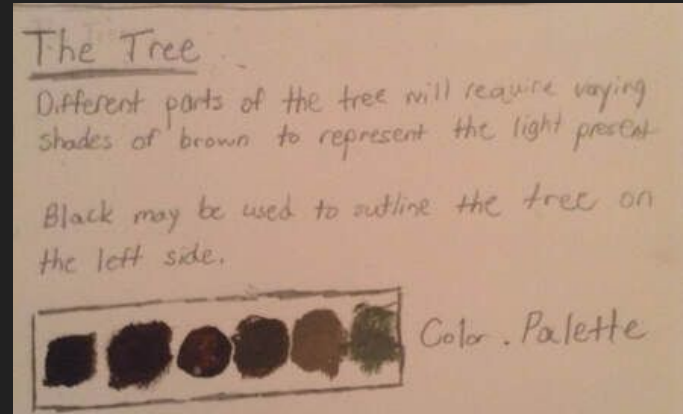 The Tree
Different parts of the tree will require varying
shades of brown to represent the light present
Black may be used to outline the tree on
the left side.
Color. Palette